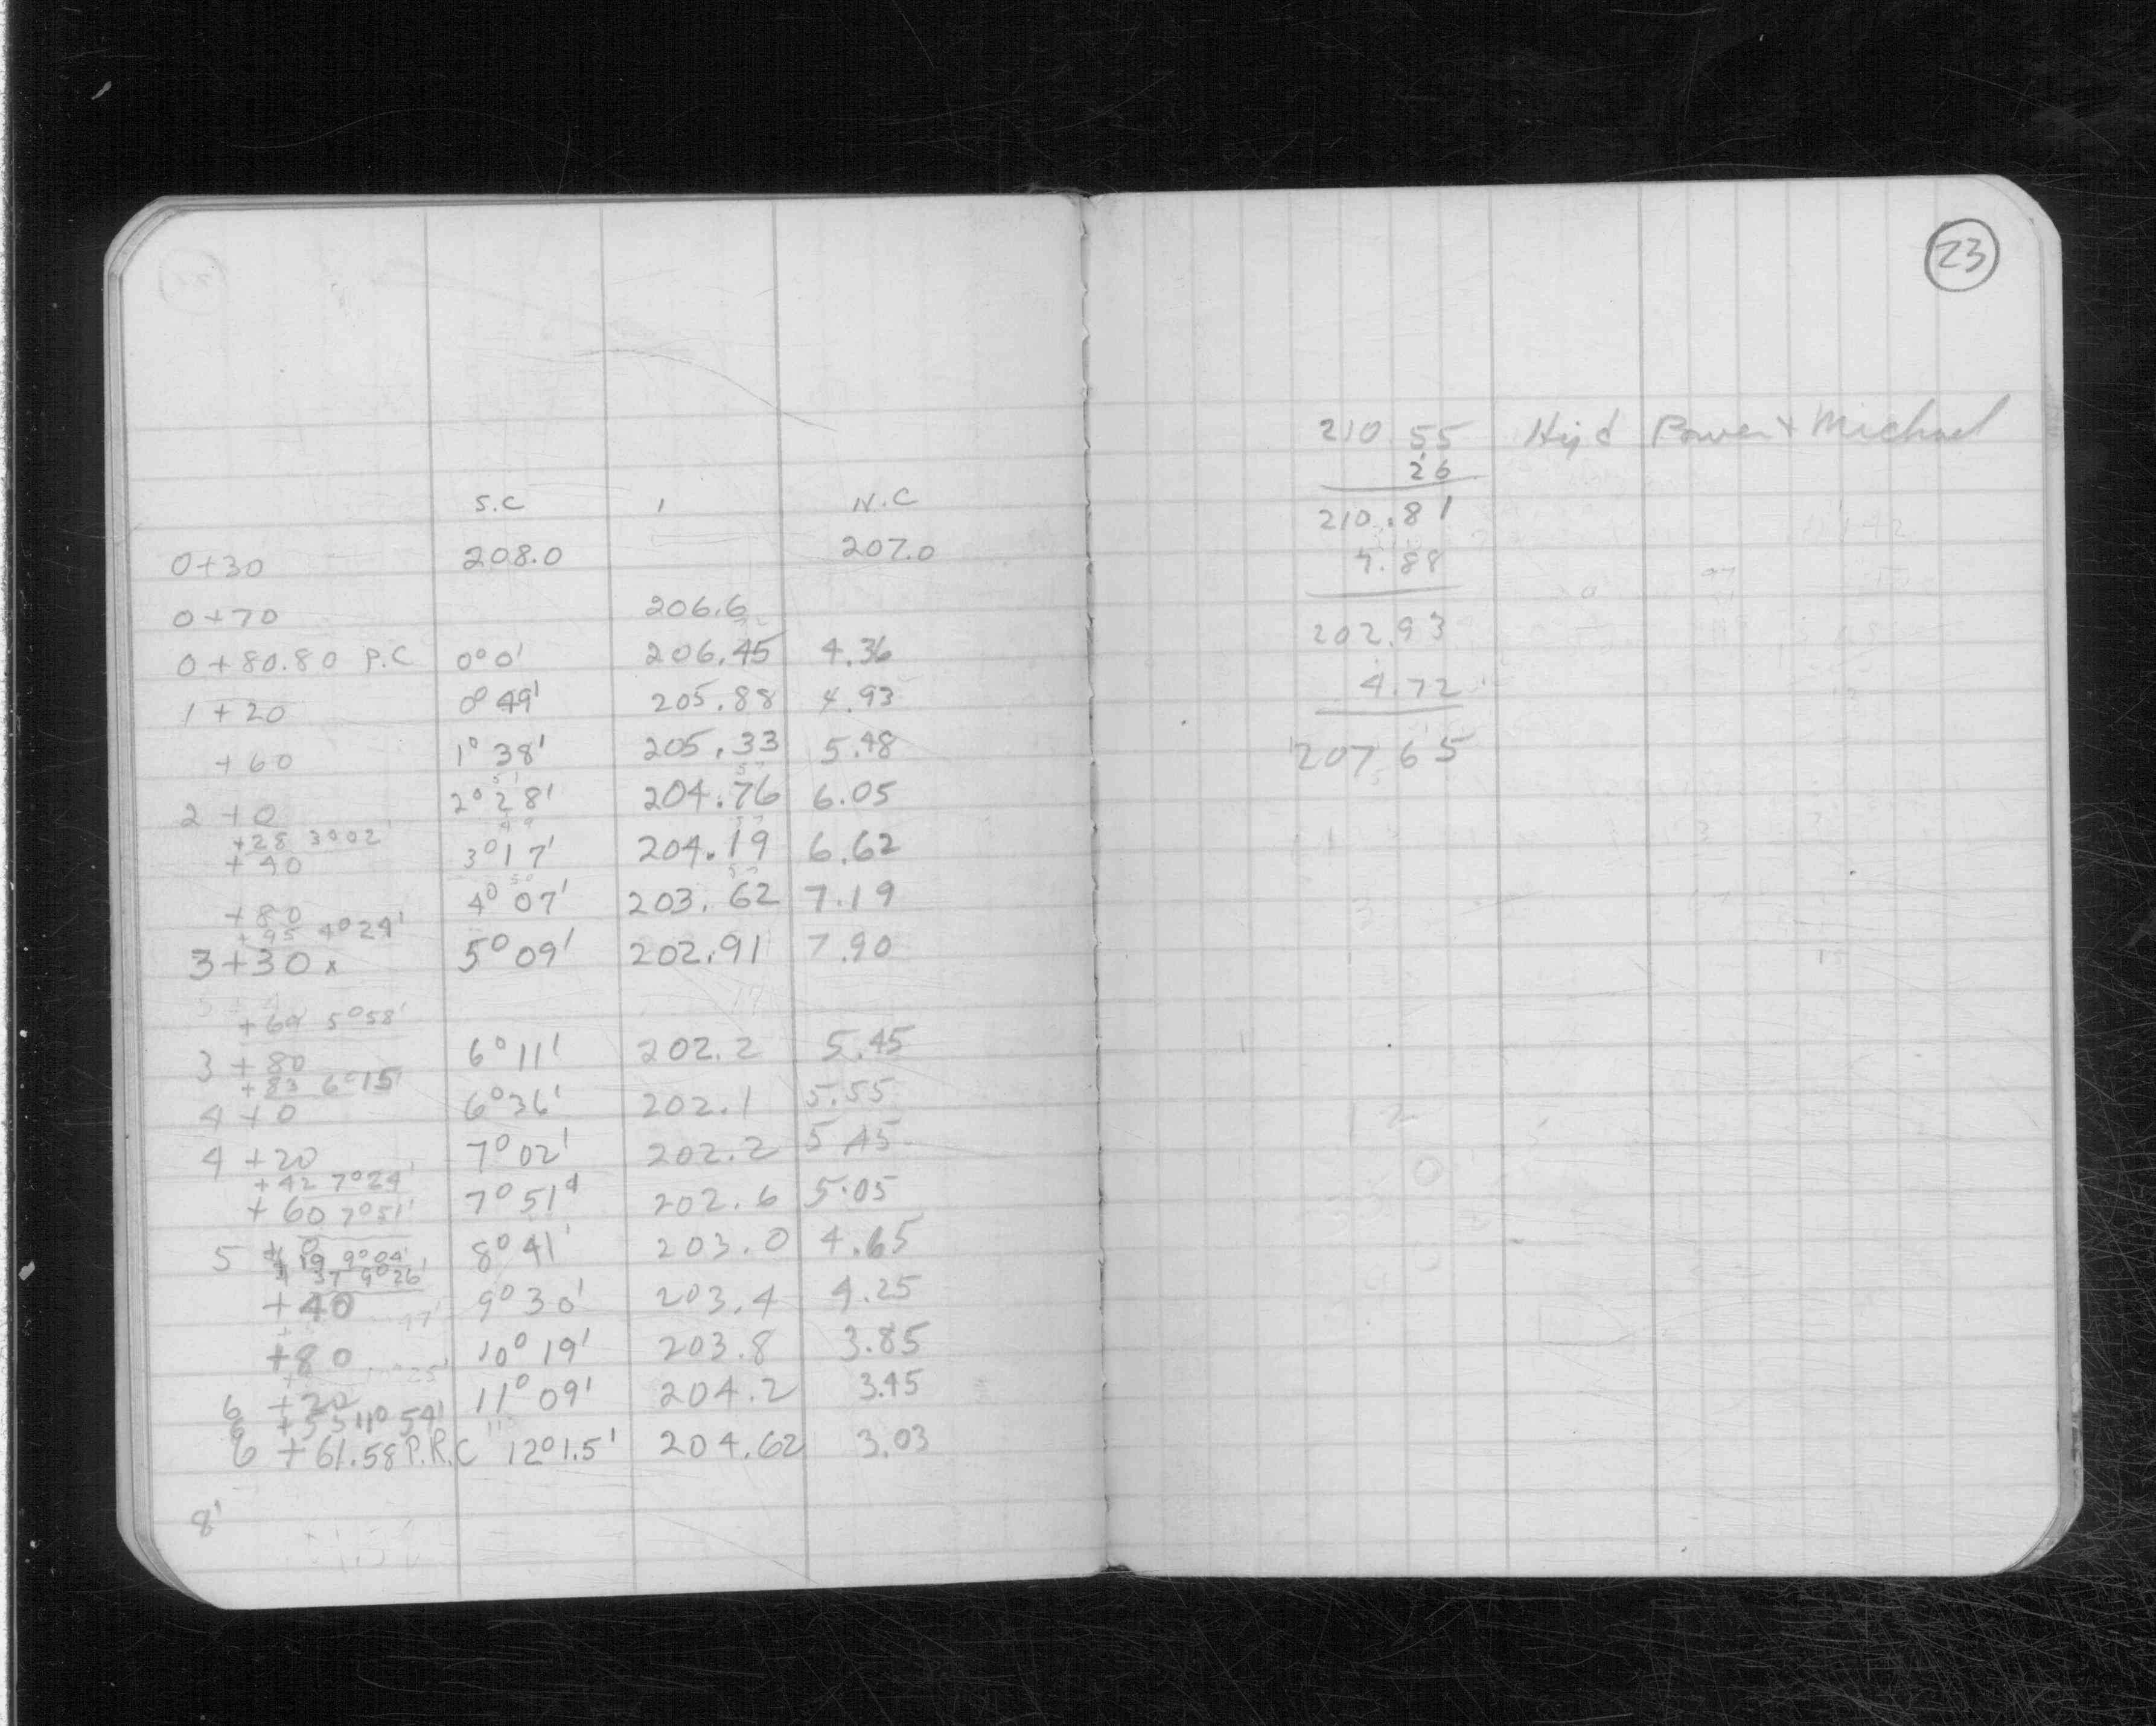 S.C N.C
0+30 208.0 207.0
0+70 206.6
0+80.80 P.C 0°0' 206.45 4.36
1+20 0°49' 205.88 4.93
+60 1°38' 205.33 5.48
2+0 2°28' 204.76 6.05
+28 3°02'
+40 3°17' 204.19 6.62
+80 4°07' 203.62 7.19
+95 4°24'
3+30 x 5°09' 202.91 7.90
+69 5°58'
3+80 6°11' 202.2 5.45
+83 6°15'
4+0 6°36' 202.1 5.55
4+20 7°02' 202.2 5.45
+42 7°29'
+60 7°51' 7°51' 202.6 5.05
5+0 8°41' 203.0 4.65
+19 9°04'
+37 9°26'
+40 9°30' 203.4 4.25
+80 10°19' 203.8 3.85
6+20 11°09' 204.2 3.45
6+55 11°54'
6+61.58 P.R.C 12°1.5' 204.62 3.03
8'
23
210.55 Hyd Power + Michael
26
210.81
7.88
202.93
4.72
207.65